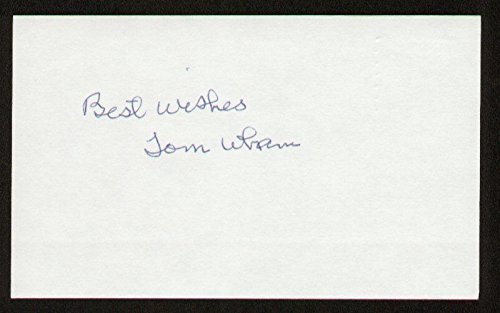 Best Wishes
Tom Wham